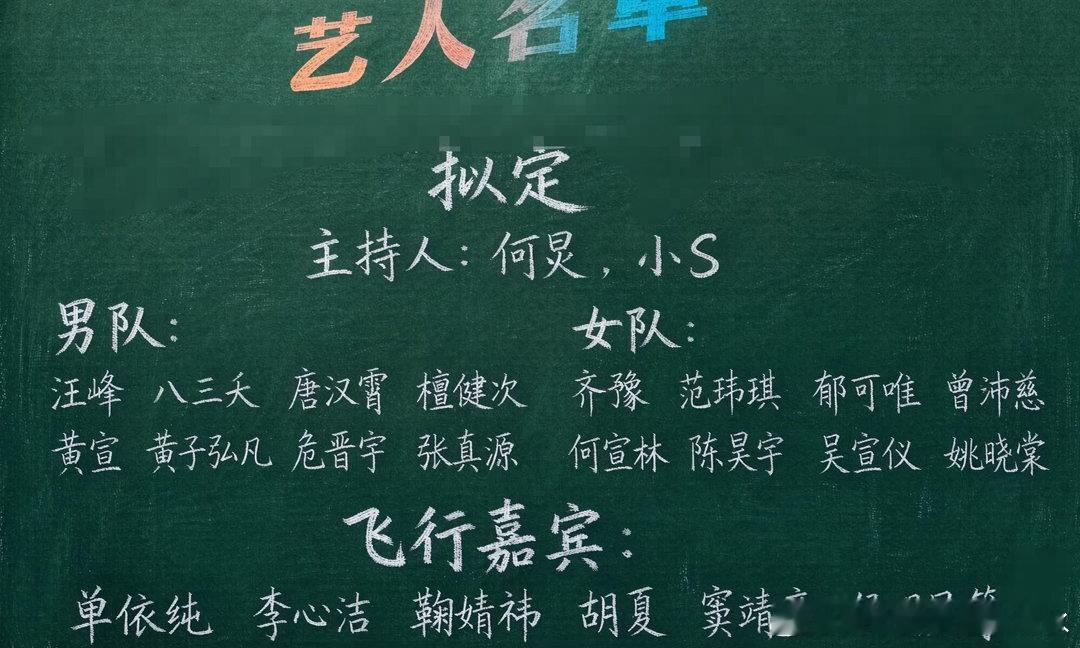 艺人名单
拟定
主持人：何炅，小S
男队：
女队：
汪峰 八三夭 唐汉霄 檀健次 齐豫 范玮琪 郁可唯 曾沛慈
黄宣 黄子弘凡 危晋宇 张真源 何宣林 陈昊宇 吴宣仪 姚晓棠
飞行嘉宾：
单依纯 李心洁 鞠婧祎 胡夏 窦靖